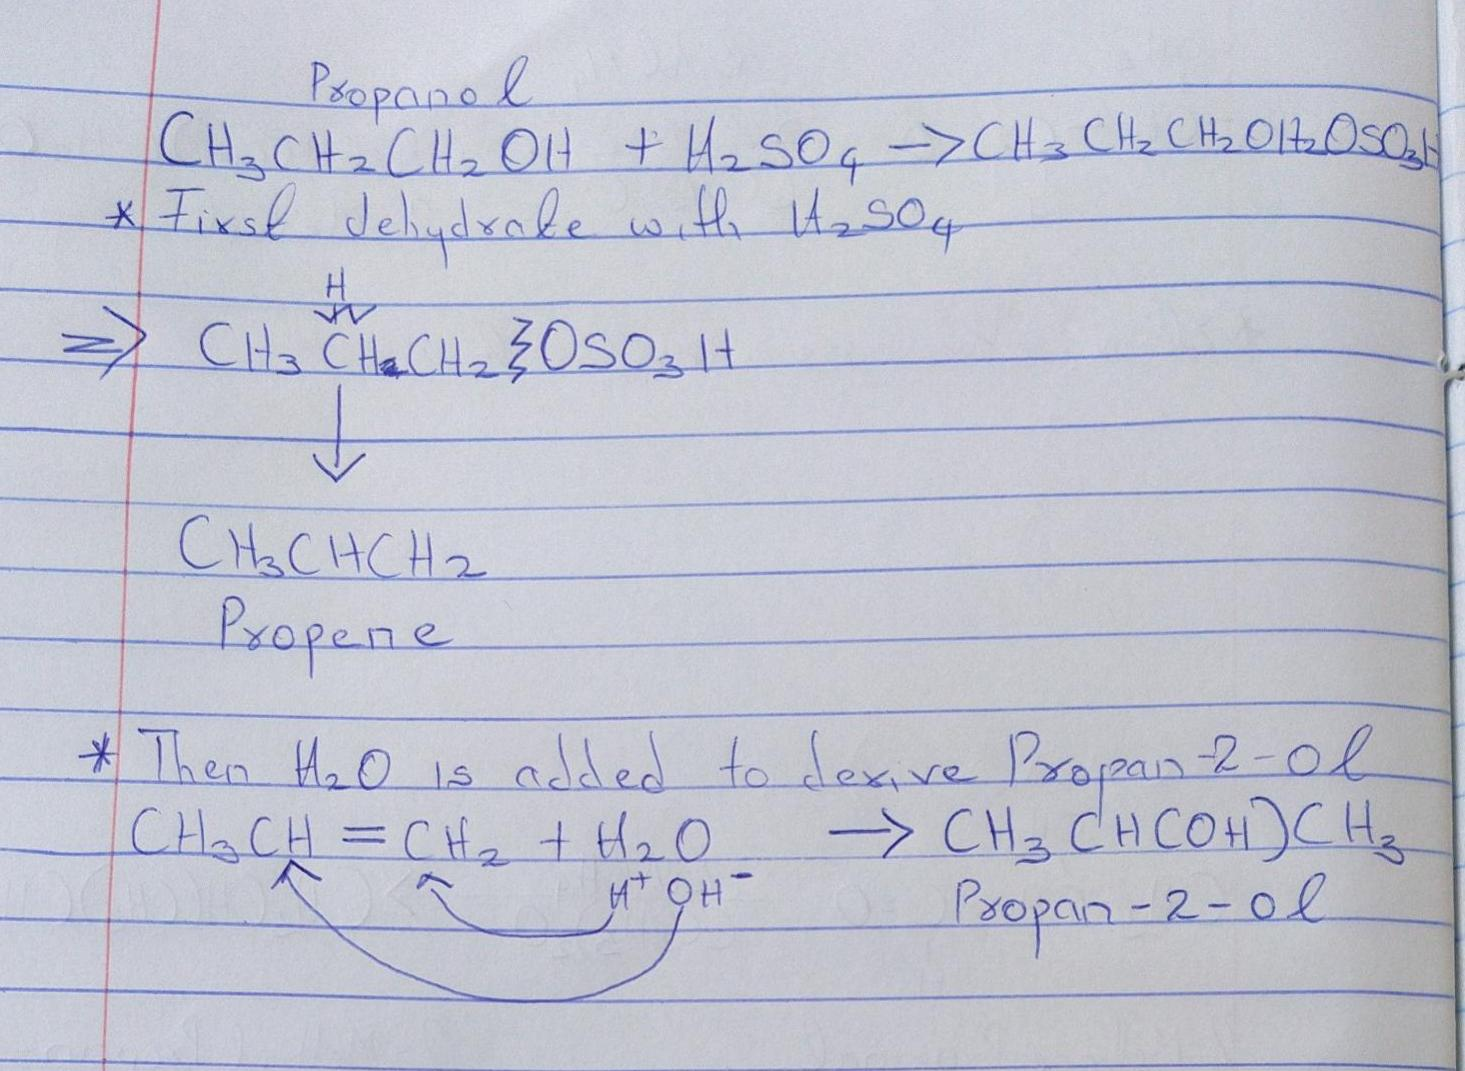 Propanol
CH₃CH₂CH₂OH + H₂SO₄ → CH₃CH₂CH₂OH₂OSO₃H
* First dehydrate with H₂SO₄
H
⇒ CH₃CH₂CH₂ OSO₃H
↓
CH₃CHCH₂
Propene
* Then H₂O is added to derive Propan-2-ol
CH₃CH=CH₂ + H₂O → CH₃CHCOH)CH₃
H⁺ OH⁻
Propan-2-ol